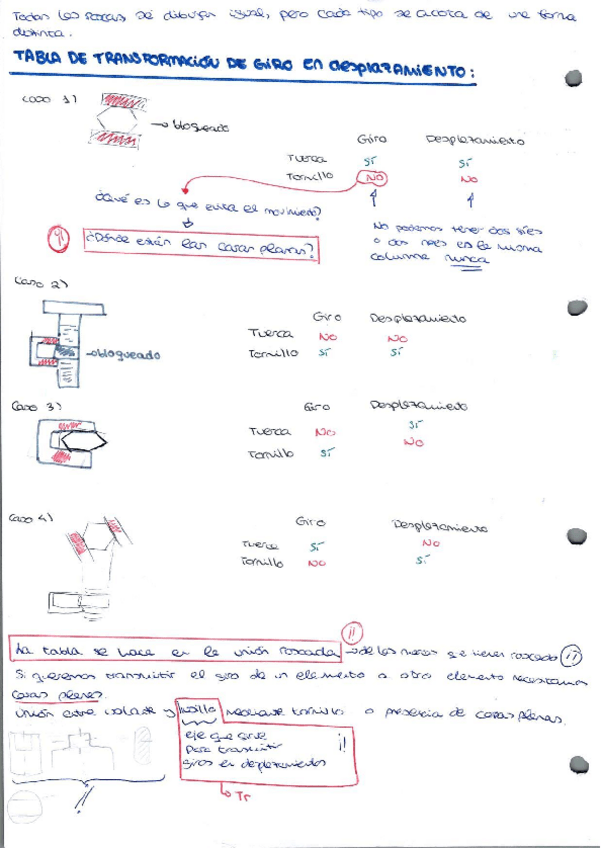 Todas las roscas se dibujan igual, pero cada tipo se acota de una forma
distinta.
TABLA DE TRANSFORMACIÓN DE GIRO en desplazamiento:
Caso 1)
→ bloqueado
Giro Desplazamiento
Tuerca SÍ SÍ
Tornillo NO NO
¿Qué es lo que evita el movimiento?
¿Dónde están las caras planas?
No podemos tener dos síes
o dos noes en la misma
columna nunca
Caso 2)
Giro Desplazamiento
Tuerca NO NO
→ bloqueado
Tornillo SÍ SÍ
Caso 3)
Giro Desplazamiento
Tuerca NO SÍ
Tornillo SÍ NO
Caso 4)
Giro Desplazamiento
Tuerca SÍ NO
Tornillo NO SÍ
!!
La tabla se hace en la unión roscada → de las que tienen roscado
Si queremos transmitir el giro de un elemento a otro elemento necesitamos
caras planas.
Unión entre volante y husillo mediante tornillo o presencia de caras planas.
eje que sirve
para transmitir
giros en desplazamientos
!!
→ Tr
!!